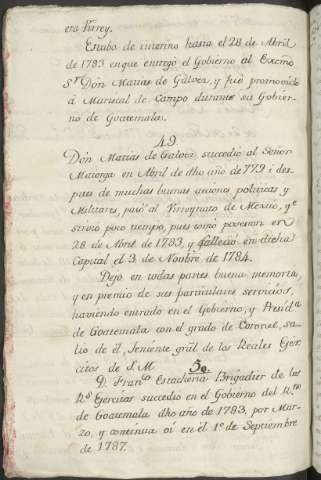 era Virrey.
Estubo de interino hasta el 28 de Abril
de 1783 en que entregó el Gobierno al Excmo
Sr Dón Matias de Gálvez, y fué promovido
á Mariscal de Campo durante su Gobier-
no de Goatemala.
49.
Dón Matias de Galvez succedio al Señor
Mayorga en Abril de dho año de 779 i des-
pues de muchas buenas acciones politicas y
Militares, pasó al Virreynato de Mexico, qe
sirvio poco tiempo, pues tomó posesion en
28 de Abril de 1783, y falleció en dicha
Capital el 3 de Novbre de 1784.
Dejo en todas partes buena memoria,
y en premio de sus particulares servicios,
haviendo entrado en el Gobierno, y Presida
de Goatemala con el grado de Coronel, sa-
lio de él, Teniente gral de los Reales Exer-
citos de S. M.
50.
D. Franco Estacheria Brigadier de los
Rs Exercitos succedio en el Gobierno del Rno
de Goatemala dho año de 1783, por Mar-
zo, y continua oi en el 1º de Septiembre
de 1787.